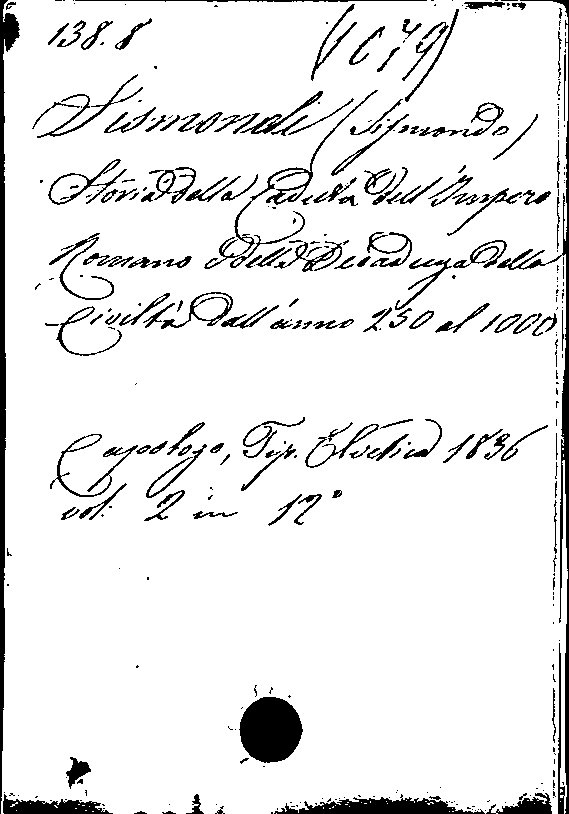 138.8 (1679)
Sismondi (Sismondo)
Storia della Caduta dell'Impero
Romano e della Decadenza della
Civiltà dall'anno 250 al 1000
Capolago, Tip. Elvetica 1836
vol. 2 in 12°